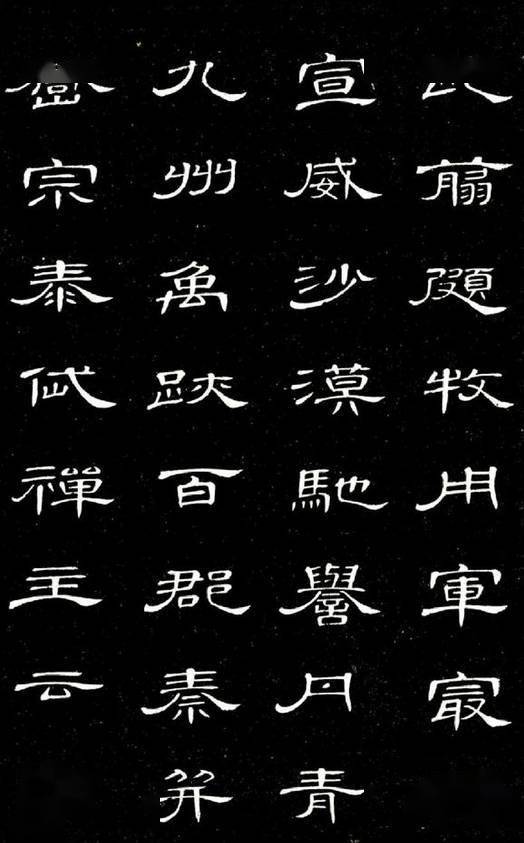 翦頗牧用軍冣
宣威沙漠馳譽丹青
九州禹跡百郡秦并
宗泰岱禪主云